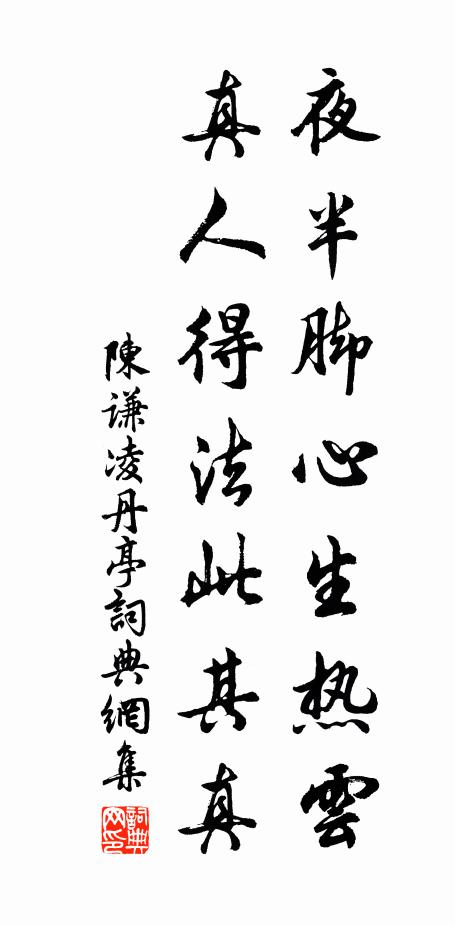 夜半脚心生热雲
真人得法此其真
陳谦凌丹亭詞典網集
詞典网印